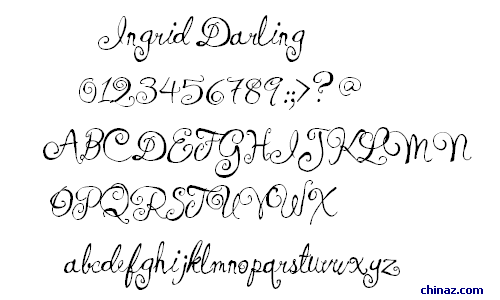 Ingrid Darling
0123456789:;>?@
ABCDEFGHIJKLMN
OPQRSTUVWX
abcdefghijklmnopqrstuvwxyz
chinaz.com